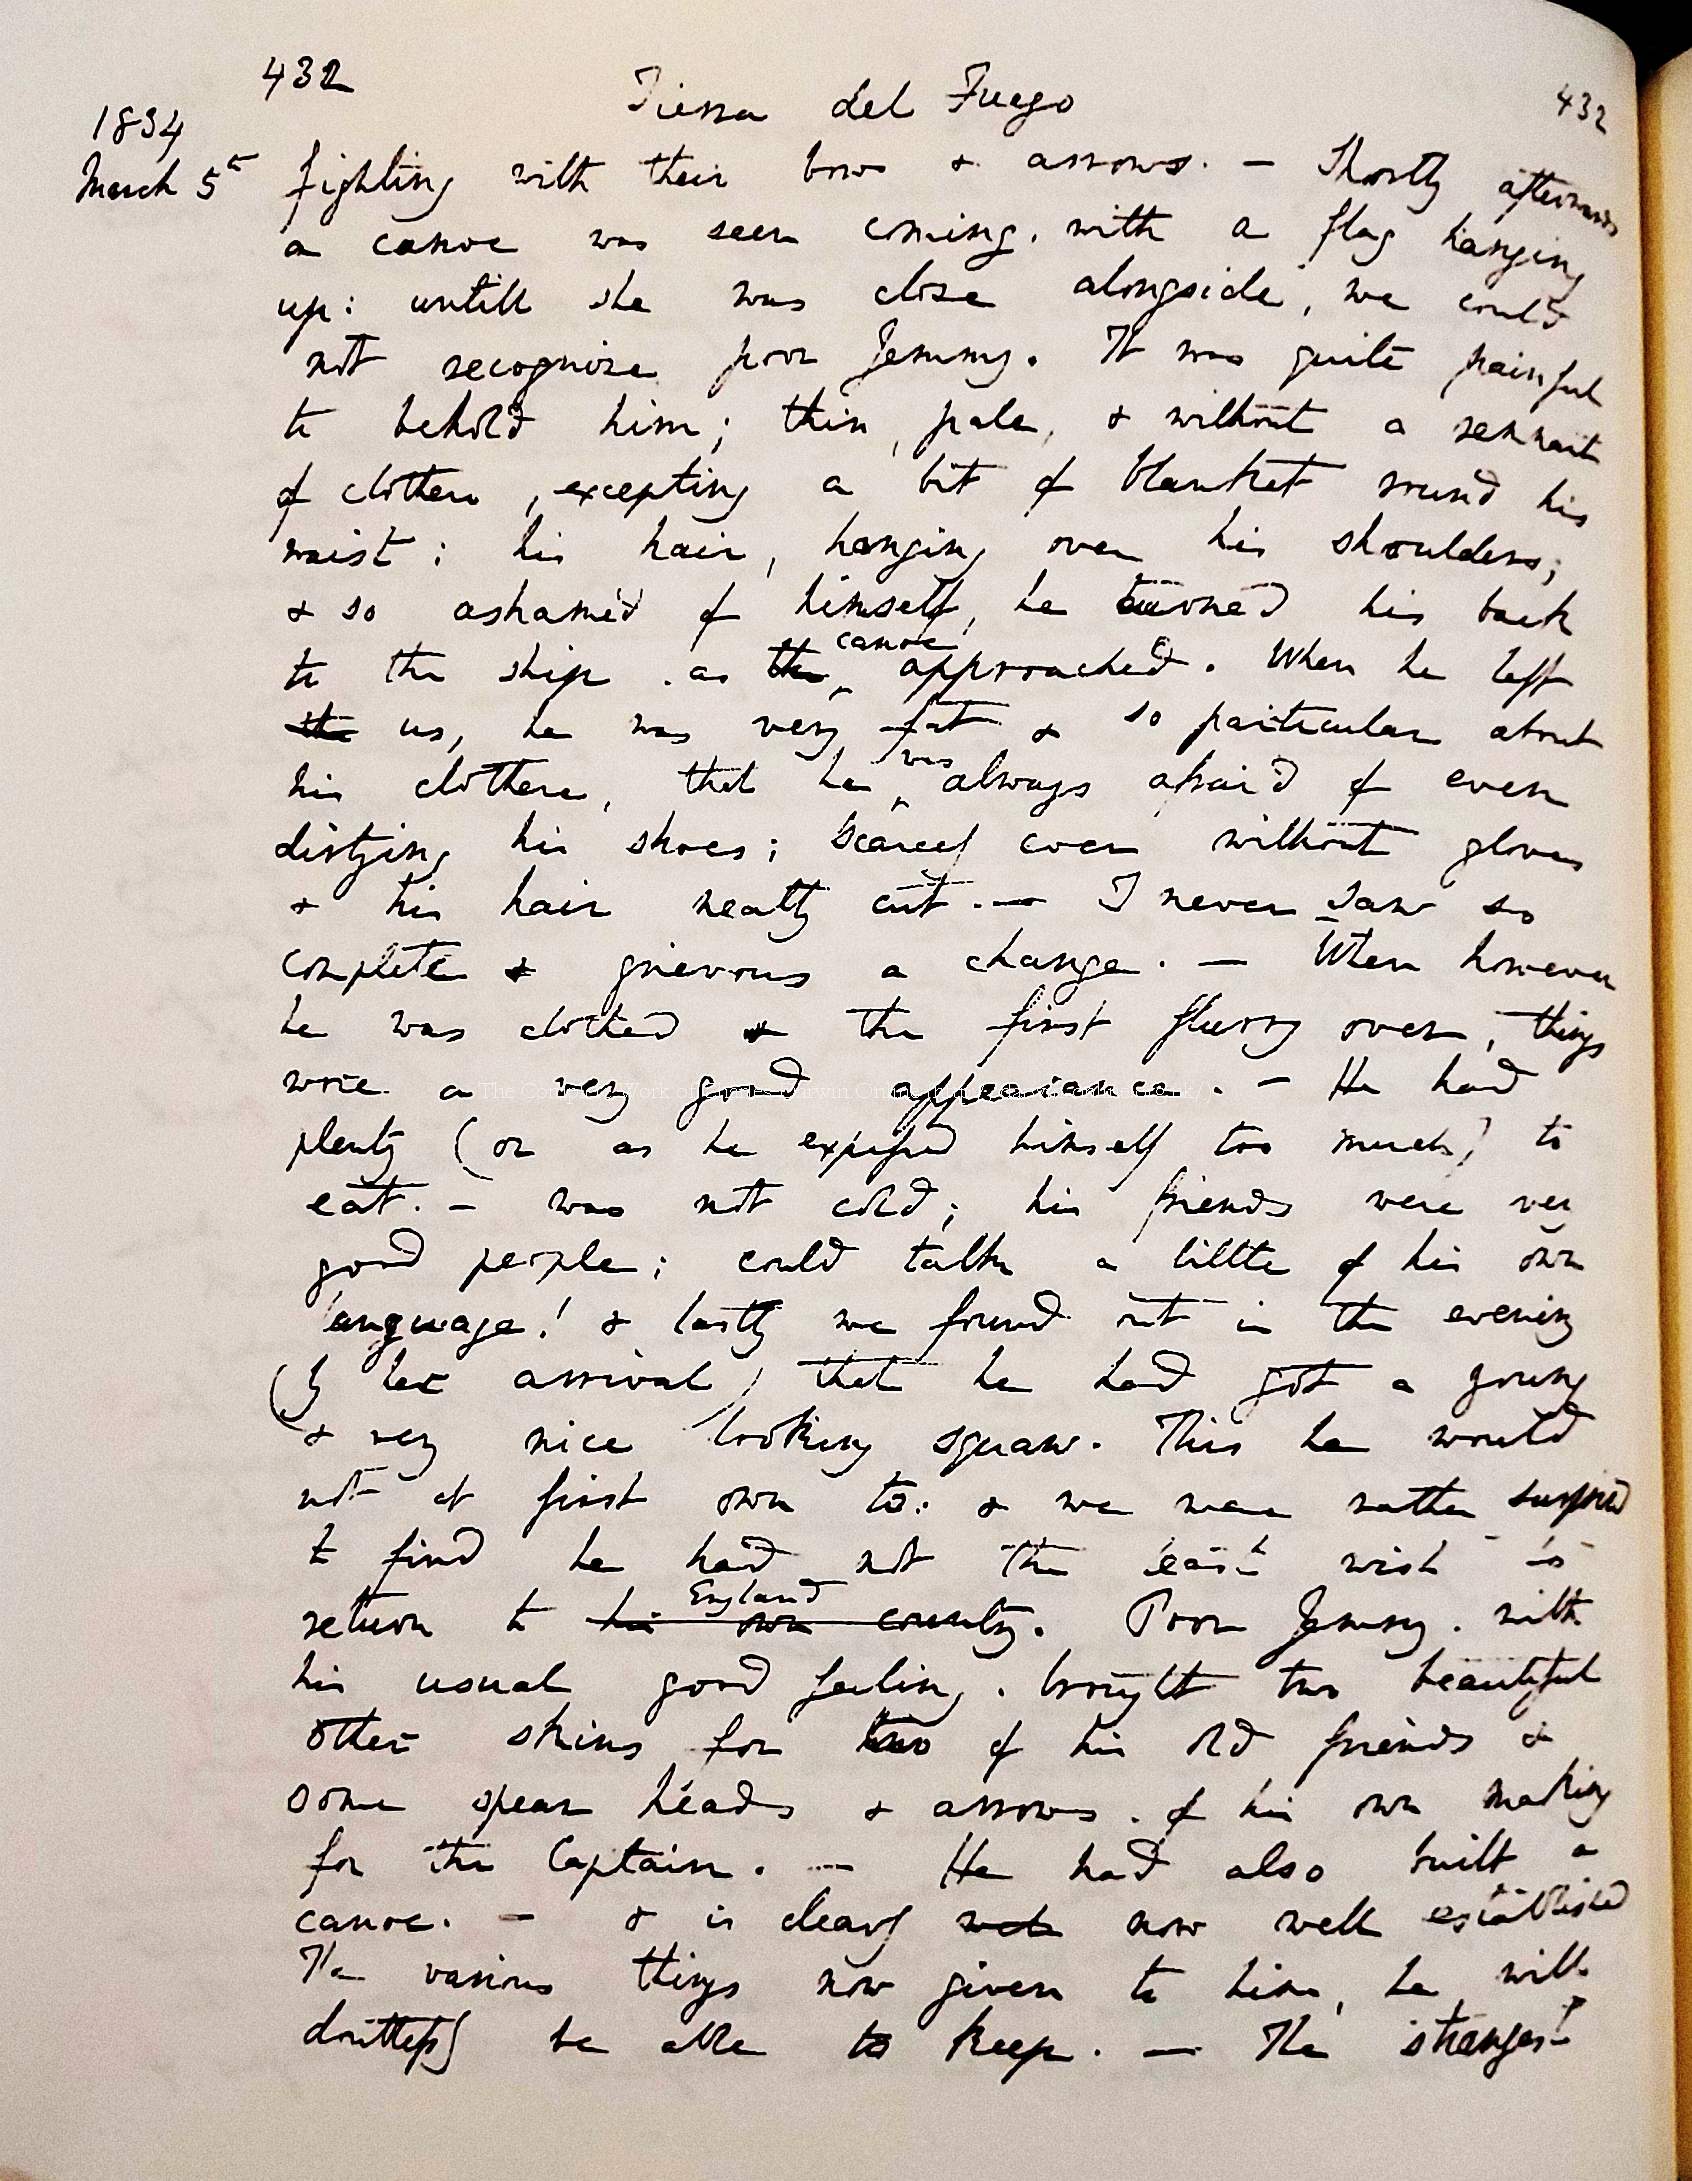 432 Tierra del Fuego 432
1834
March 5th fighting with their bows & arrows. — Shortly afterwards
a canoe was seen coming. with a flag hanging
up: untill she was close alongside, we could
not recognise poor Jemmy. It was quite painful
to behold him; thin, pale, & without a remnant
of clothes, excepting a bit of blanket round his
waist: his hair, hanging over his shoulders;
& so ashamed of himself, he turned his back
to the ship. as the canoe approached. When he left
the us, he was very fat & so particular about
his clothes, that he was always afraid of even
dirtying his shoes; scarcely ever without gloves
& his hair neatly cut. — I never saw so
complete & grievous a change. — When however
he was clothed & the first flurry over, things
wore a very good appearance. — He had
plenty (or as he expressed himself too much) to
eat. — was not cold; his friends were very
good people; could talk a little of his own
language! & lastly we found out in the evening
(by her arrival) that he had got a young
& very nice looking squaw. This he would
not at first own to: & we were rather surprised
to find he had not the least wish to
return to his own country England. Poor Jemmy. with
his usual good feeling. brought two beautiful
otter skins for two of his old friends &
some spear heads & arrows. of his own making
for the Captain. — He had also built a
canoe. — & is clearly now well established
The various things now given to him, he will
doubtless be able to keep. — The strangest